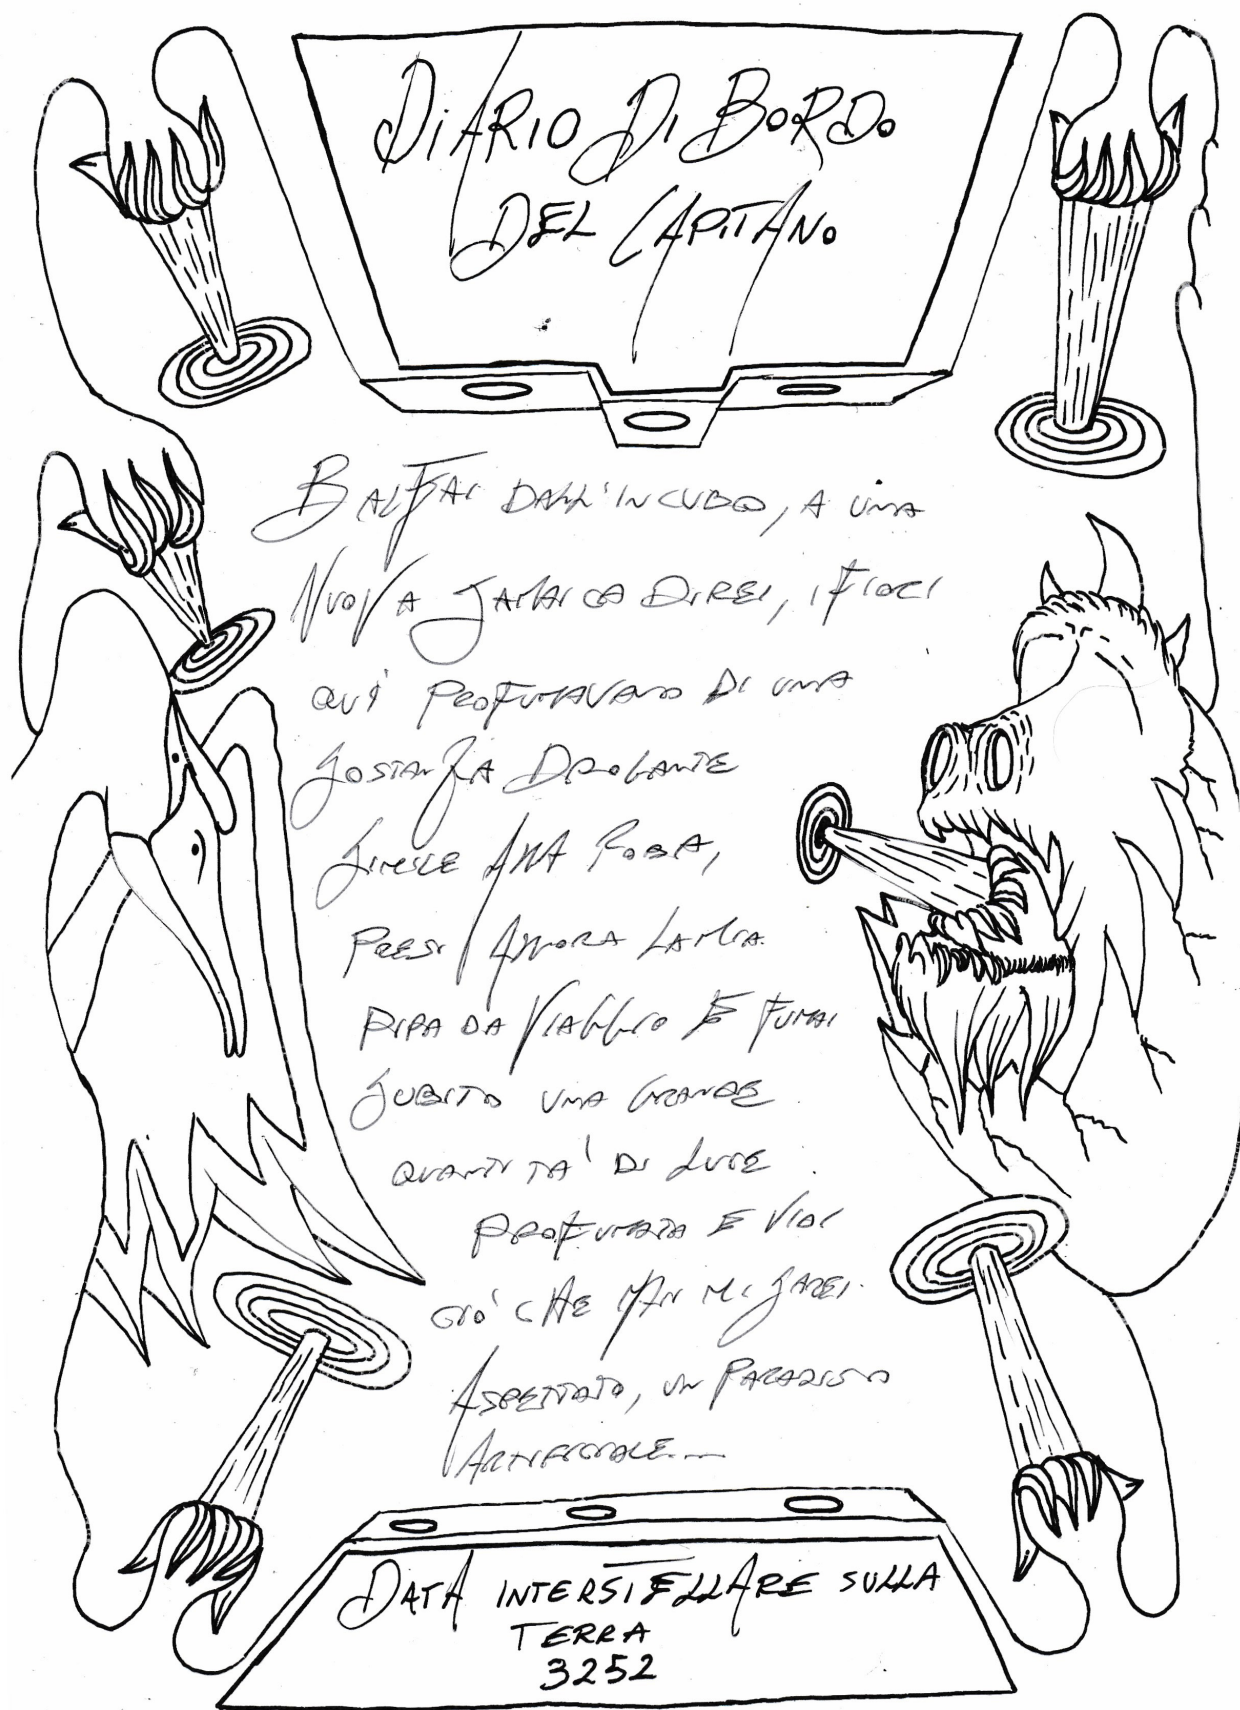 DIARIO DI BORDO
DEL CAPITANO
BALZAI DALL'INCUBO, A UNA
NUOVA JAMAICA DIREI, I FIORI
QUI PROFUMAVANO DI UNA
SOSTANZA DROGANTE
SIMILE ALLA ROBA,
PRESI ANCORA LA MIA
PIPA DA VIAGGIO E FUMAI
SUBITO UNA GRANDE
QUANTITA' DI LUCE
PROFUMATA E VIDI
CIÒ CHE MAI MI SAREI
ASPETTATO, UN PARADISO
ARTIFICIALE...
DATA INTERSTELLARE SULLA
TERRA
3252